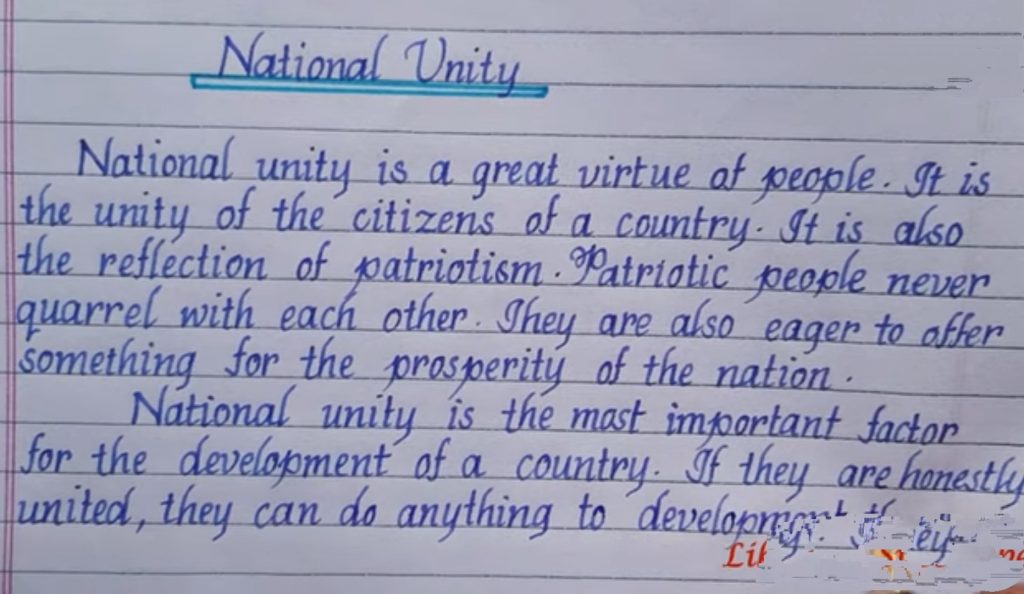 National Unity
National unity is a great virtue of people. It is
the unity of the citizens of a country. It is also
the reflection of patriotism. Patriotic people never
quarrel with each other. They are also eager to offer
something for the prosperity of the nation.
National unity is the most important factor
for the development of a country. If they are honestly
united, they can do anything to